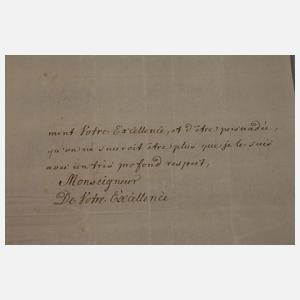 ment Votre Excellence, et d'être persuadée,
qu'on ne sauroit être plus que je le suis
avec un très profond respect,
Monseigneur
De Votre Excellence